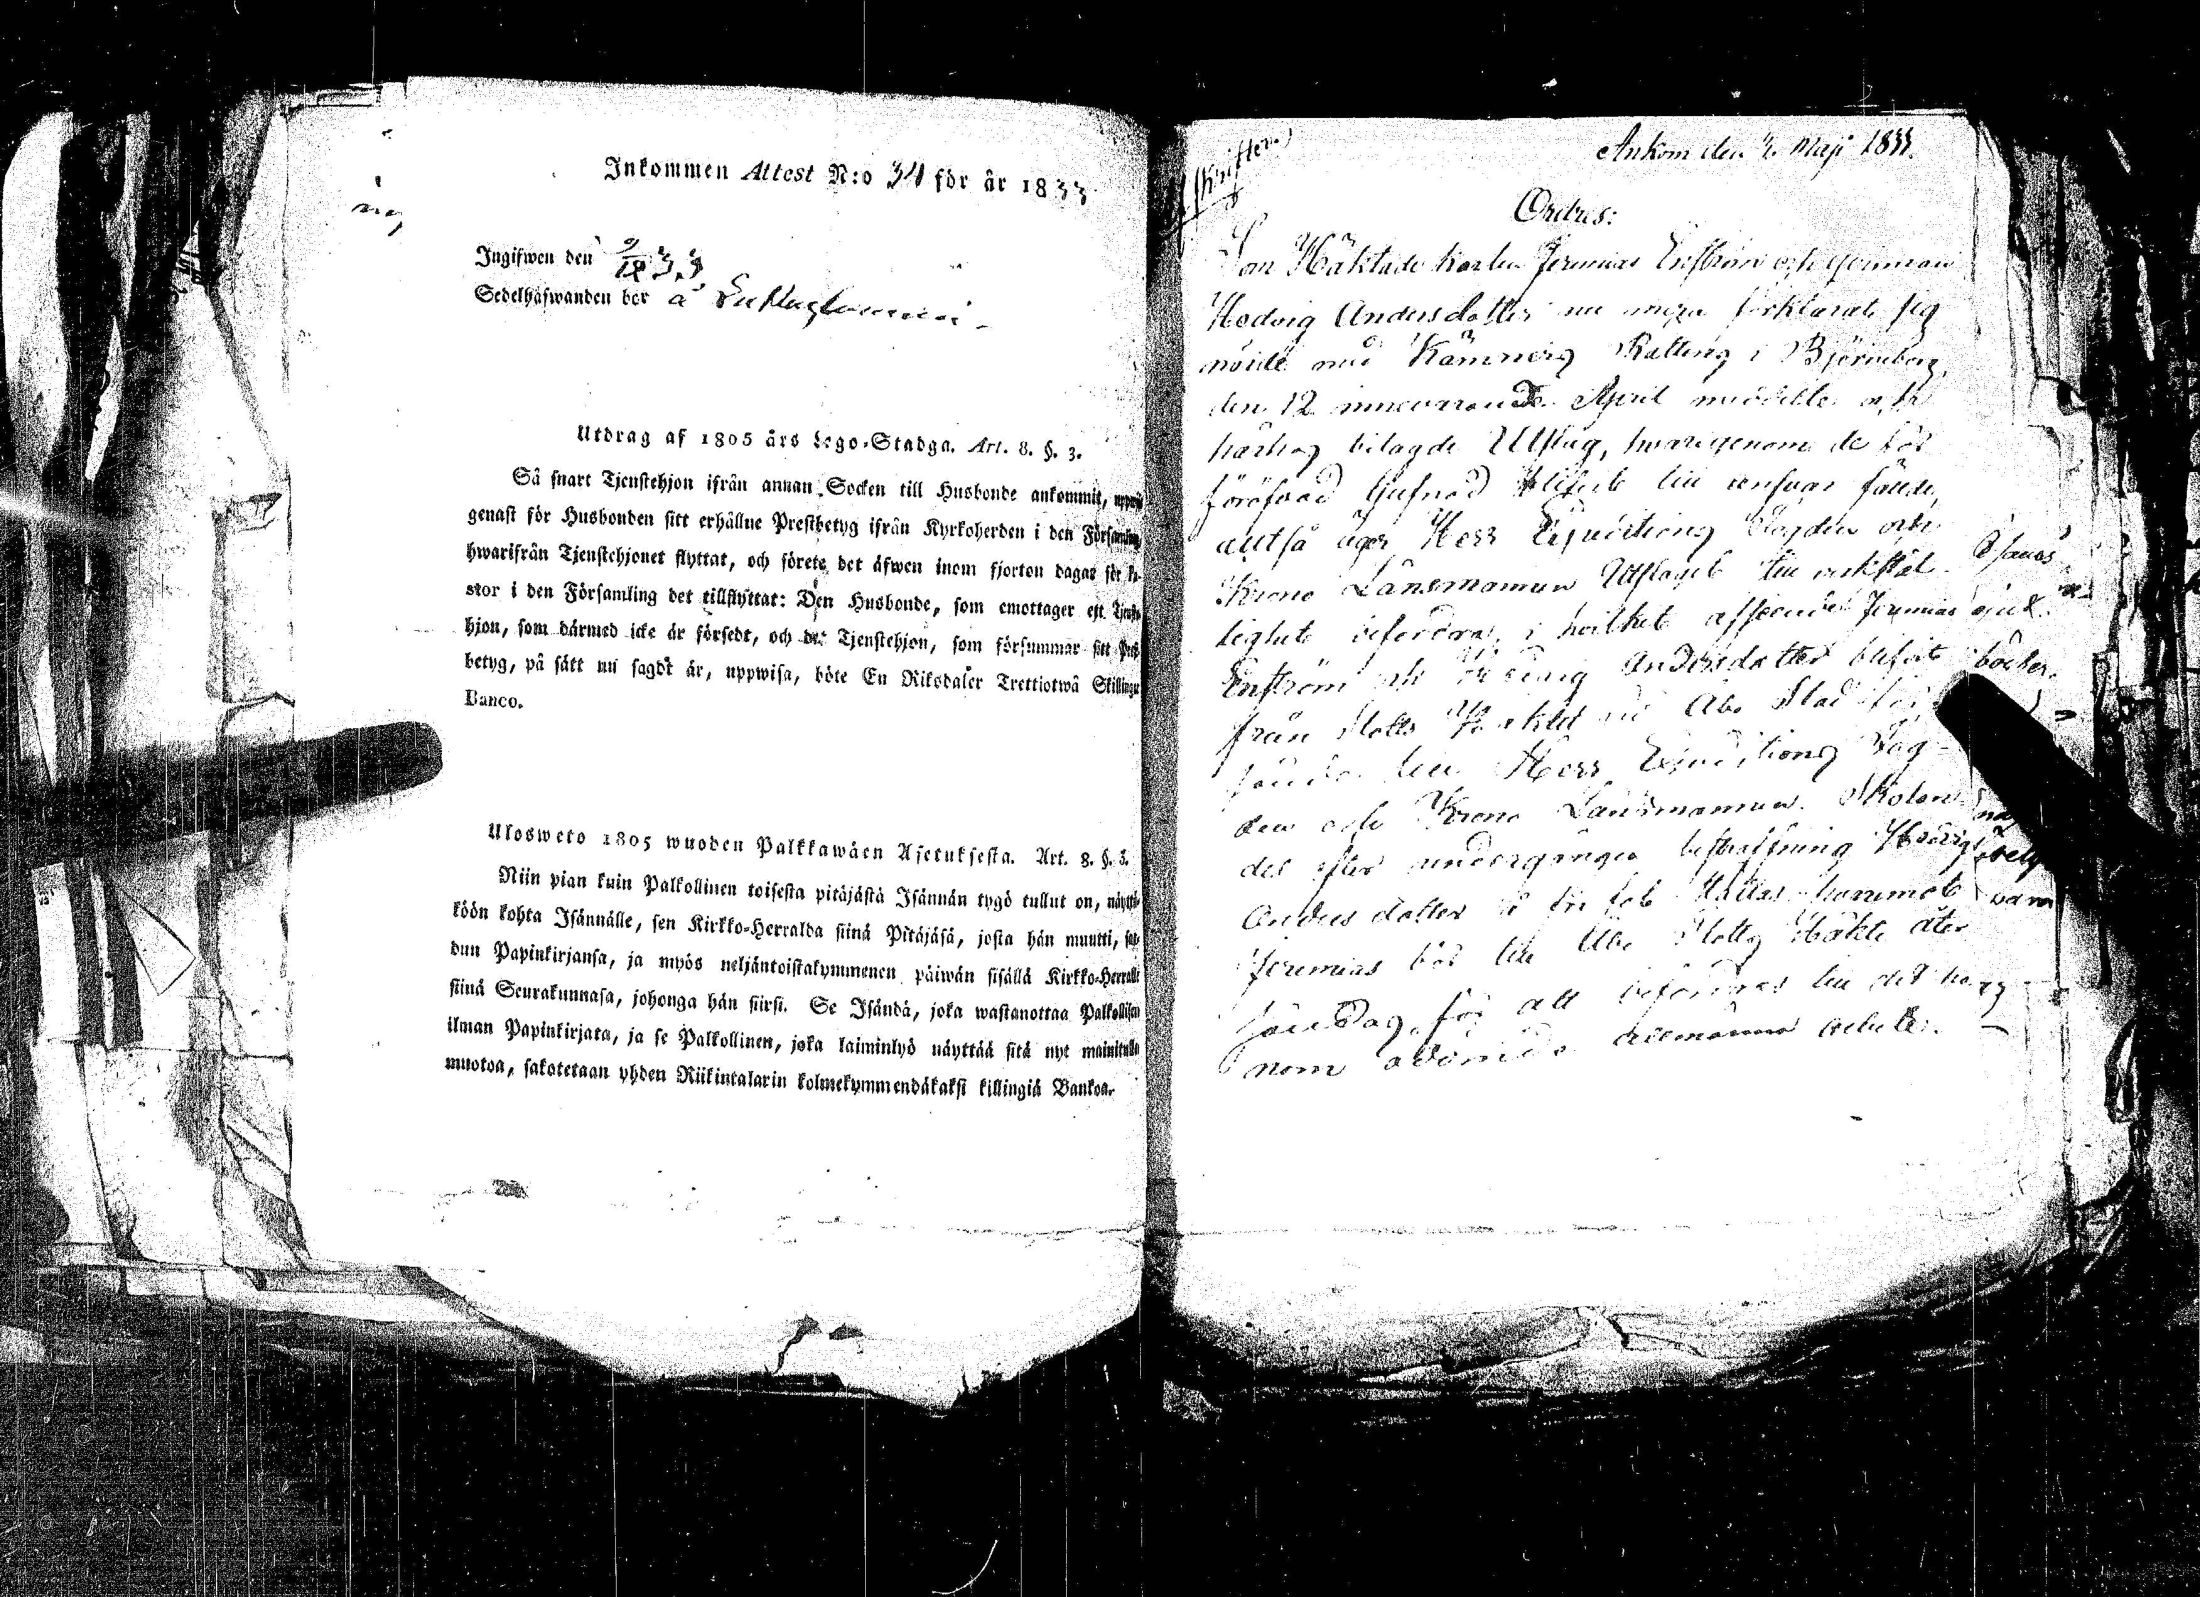 Inkommen Attest N:o 34 för år 1833
Ingifwen den 9/12 33
Sedelhafwanden bor å
Utdrag af 1805 års Lego-Stadga. Art. 8. §. 3.
Så snart Tjenstehjon ifrån annan Socken till Husbonde ankommit,
genast för Husbonden sitt erhållne Prestbetyg ifrån Kyrkoherden i den Församling
hwarifrån Tjenstehjonet flyttat, och förete det äfwen inom fjorton dagar för
stor i den Församling det tillflyttat: Den Husbonde, som emottager ett Tjenste-
hjon, som därmed icke är försedt, och det Tjenstehjon, som försummar sitt
betyg, på sätt nu sagdt är, uppwisa, böte En Riksdaler Trettiotwå Skillingar
Banco.
Ulosweto 1805 wuoden Palkkawäen Asetuksesta. Art. 8. §. 3.
Niin pian kuin Palkollinen toisesta pitäjästä Isännän tygö tullut on, näyttä-
köön kohta Isännälle, sen Kirkko-Herralda siinä Pitäjäsä, josta hän muutti, saa-
dun Papinkirjansa, ja myös neljäntoistakymmenen päiwän sisällä Kirkko-Herralle
siinä Seurakunnasa, johonga hän siirsi. Se Isändä, joka wastanottaa Palkollisen
ilman Papinkirjata, ja se Palkollinen, joka laiminlyö näyttää sitä nyt mainitulla
muotoa, sakotetaan yhden Riikintalarin kolmekymmendäkaksi killingiä Bankoa.
Ankom den 2. Maji 1833.
Ordres:
Som Häktade Karlen Jeremias Enström och Qvinnan
Hedvig Andersdotter nu mera förklarat sig
nöide med Kämners Rättens i Björneborg
den 12 innevarande April meddelte och
härhos bilagde Utslag, hvarigenom de för
föröfvad tjufnad blifvit till ansvar fällde,
altså äger Herr Expeditions Fogden och
Krono Länsmannen Utslaget till verkstäl-
lighet befordra, i hvilket afseende Jeremias
Enström och Hedvig Andersdotter blifvit
från Slotts Häktet vid Åbo Stad för-
till Herr Expeditions Fog-
den och Krono Länsmannen. Skolan-
des efter undergången bestraffning Hedvig
Andersdotter å fri fot ställas hvaremot
Jeremias bör till Åbo Slotts Häkte åter
för att befordras till det ho-
nom ådömde allmänna arbete.
böcker.